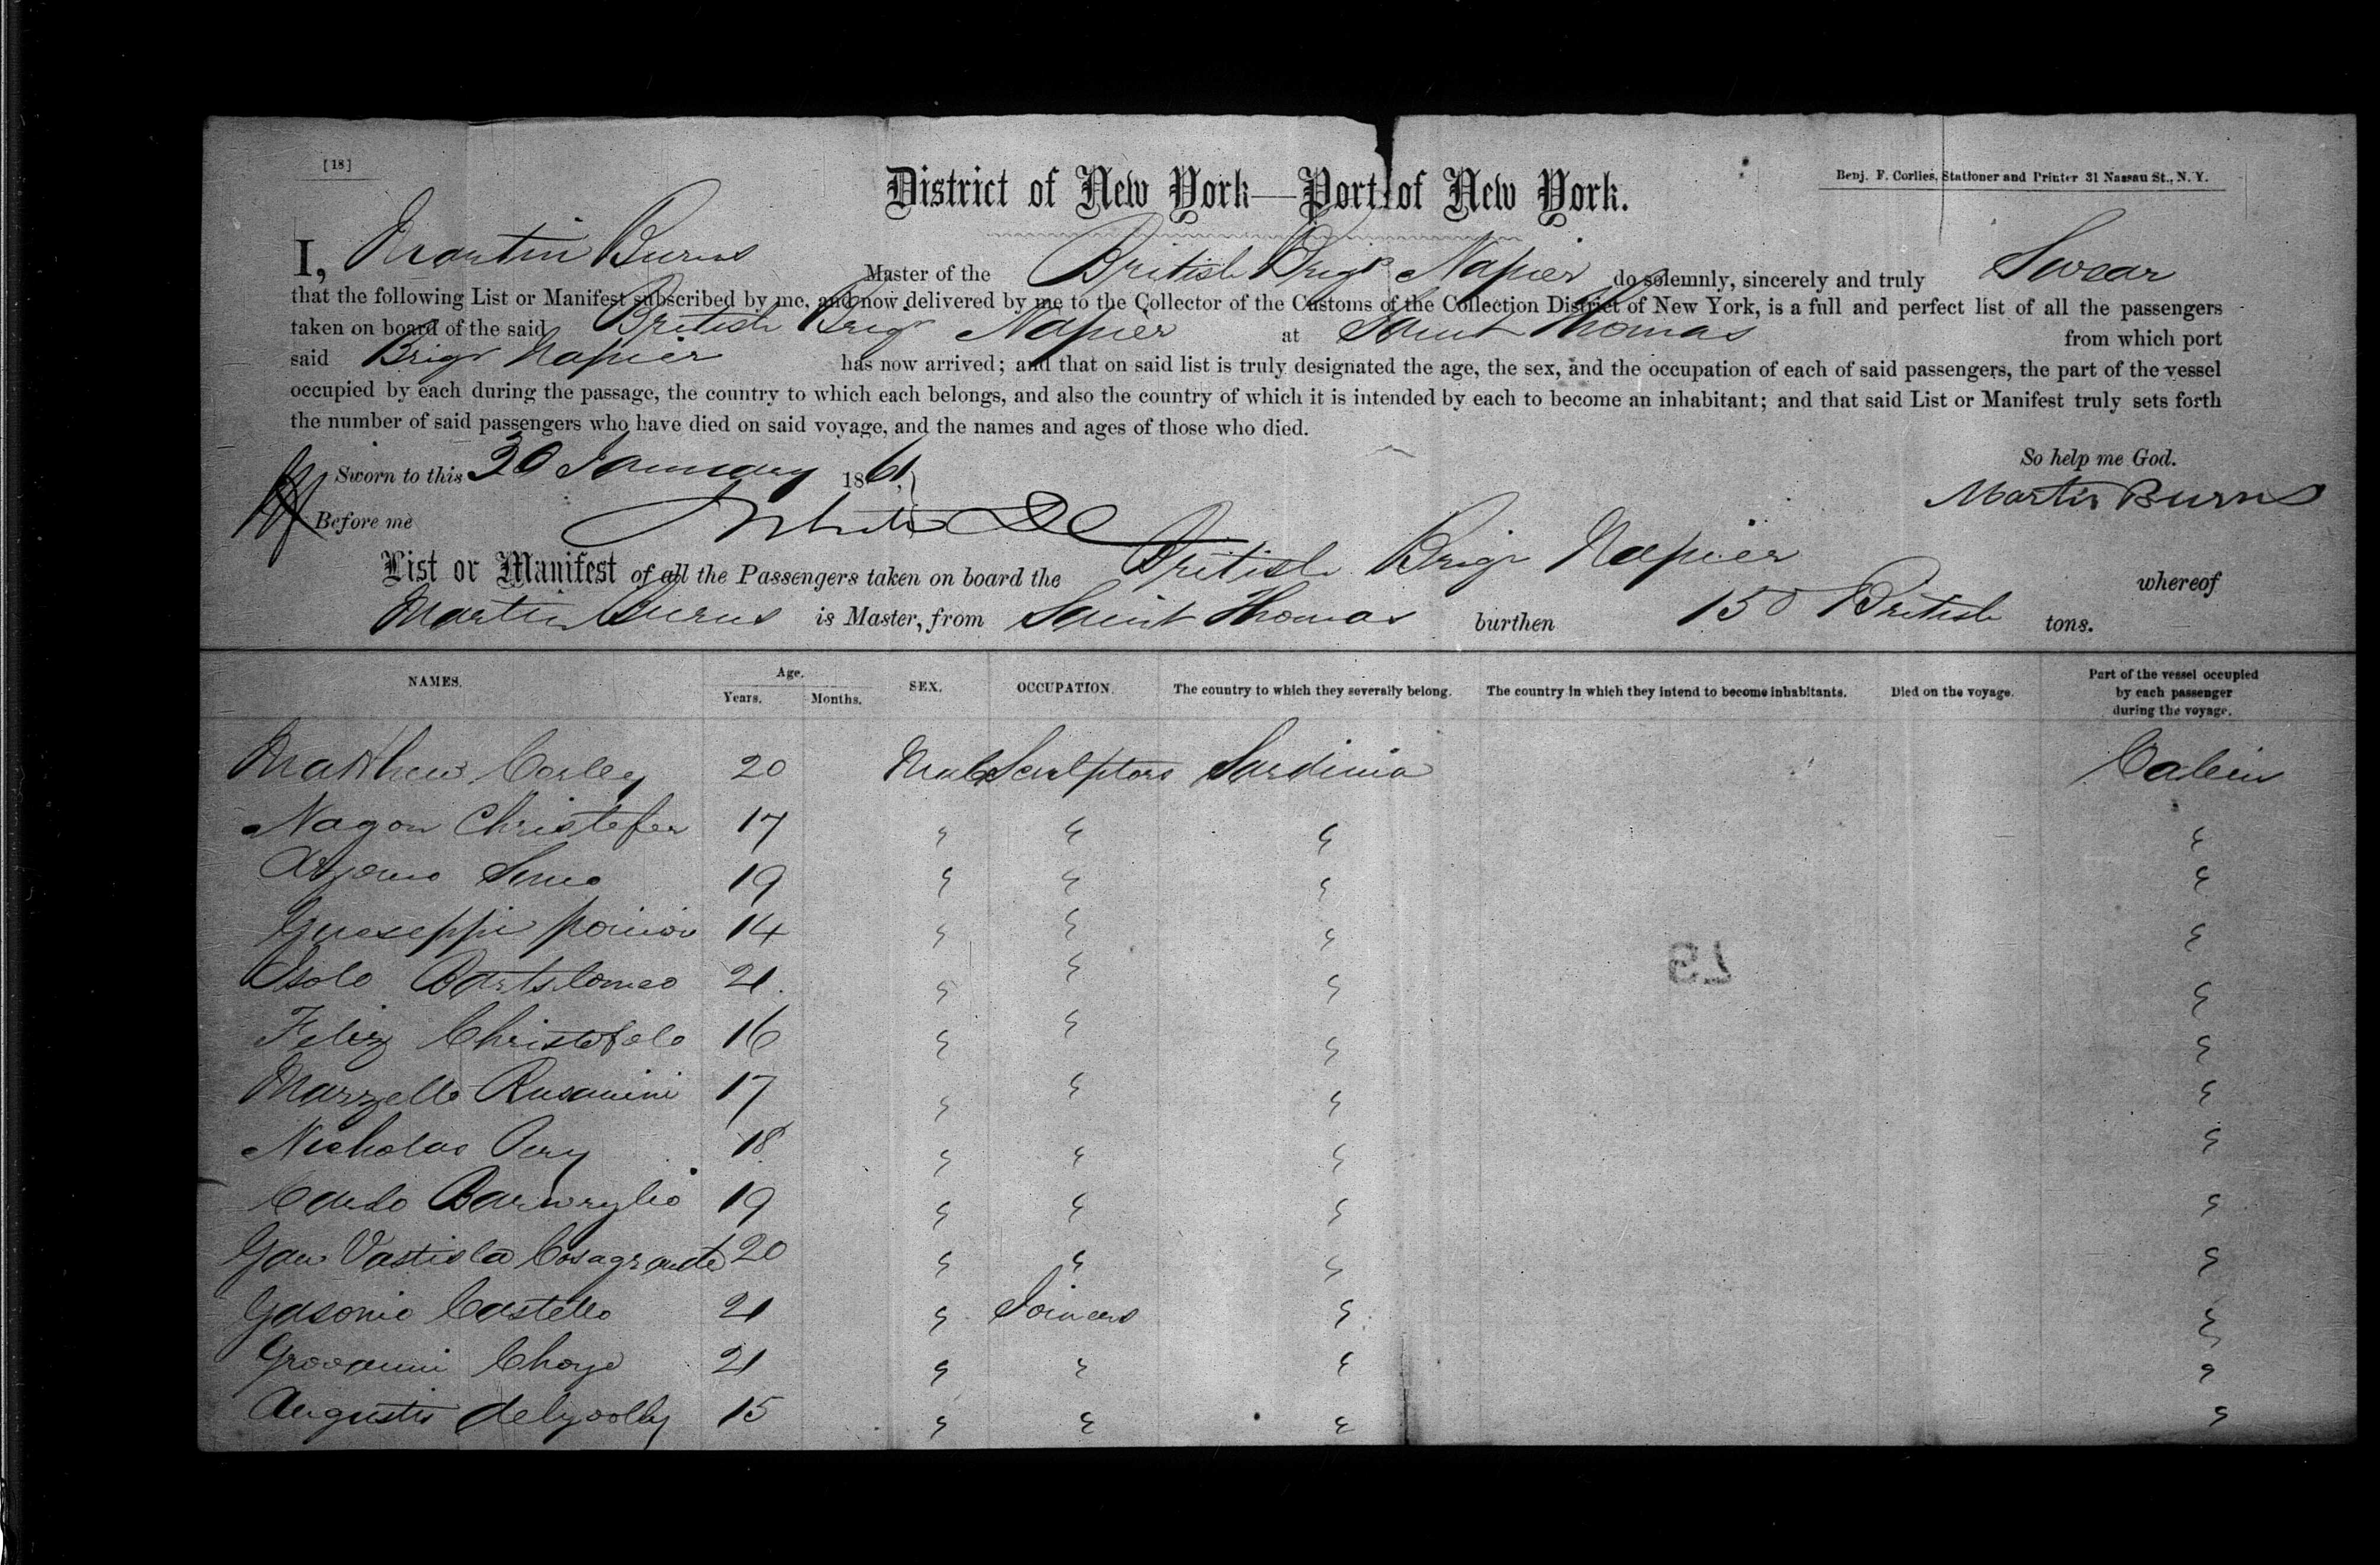 [18]
District of New York—Port of New York.
Benj. F. Corlies, Stationer and Printer 31 Nassau St., N. Y.
I, Martin Burns Master of the British Brigt Napier do solemnly, sincerely and truly Swear
that the following List or Manifest subscribed by me, and now delivered by me to the Collector of the Customs of the Collection District of New York, is a full and perfect list of all the passengers
taken on board of the said British Brigt Napier at Saint Thomas from which port
said Brigt Napier has now arrived; and that on said list is truly designated the age, the sex, and the occupation of each of said passengers, the part of the vessel
occupied by each during the passage, the country to which each belongs, and also the country of which it is intended by each to become an inhabitant; and that said List or Manifest truly sets forth
the number of said passengers who have died on said voyage, and the names and ages of those who died.
So help me God.
Sworn to this 30 January 1861,
Martin Burns
Before me
List or Manifest of all the Passengers taken on board the British Brigt Napier whereof
Martin Burns is Master, from Saint Thomas burthen 150 British tons.
NAMES. Age. Years. Months. SEX. OCCUPATION. The country to which they severally belong. The country in which they intend to become inhabitants. Died on the voyage. Part of the vessel occupied by each passenger during the voyage.
Matthew Corley 20 Male Sculptors Sardinia Cabin
Nagon Christefer 17 " " " "
19 " " " "
Gueseppie 14 " " " "
Isolo Bartolomeo 21 " " " "
Feliz Christofolo 16 " " " "
Marzello Rusanini 17 " " " "
Nicholas Pery 18 " " " "
Carlo 19 " " " "
Gan Vastisla Cosagrande 20 " " " "
Gasonio Costello 21 " Joiners " "
Giovanni 21 " " " "
Augustis 15 " " " "